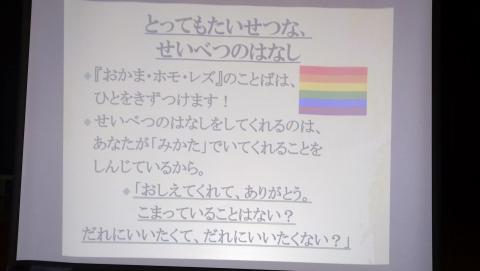 とってもたいせつな、
せいべつのはなし
『おかま・ホモ・レズ』のことばは、
ひとをきずつけます！
せいべつのはなしをしてくれるのは、
あなたが「みかた」でいてくれることを
しんじているから。
「おしえてくれて、ありがとう。
こまっていることはない？
だれにいいたくて、だれにいいたくない？」